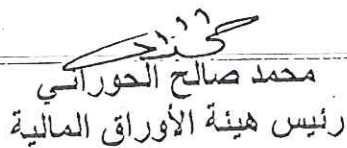 محمد صالح الحوراني
رئيس هيئة الأوراق المالية